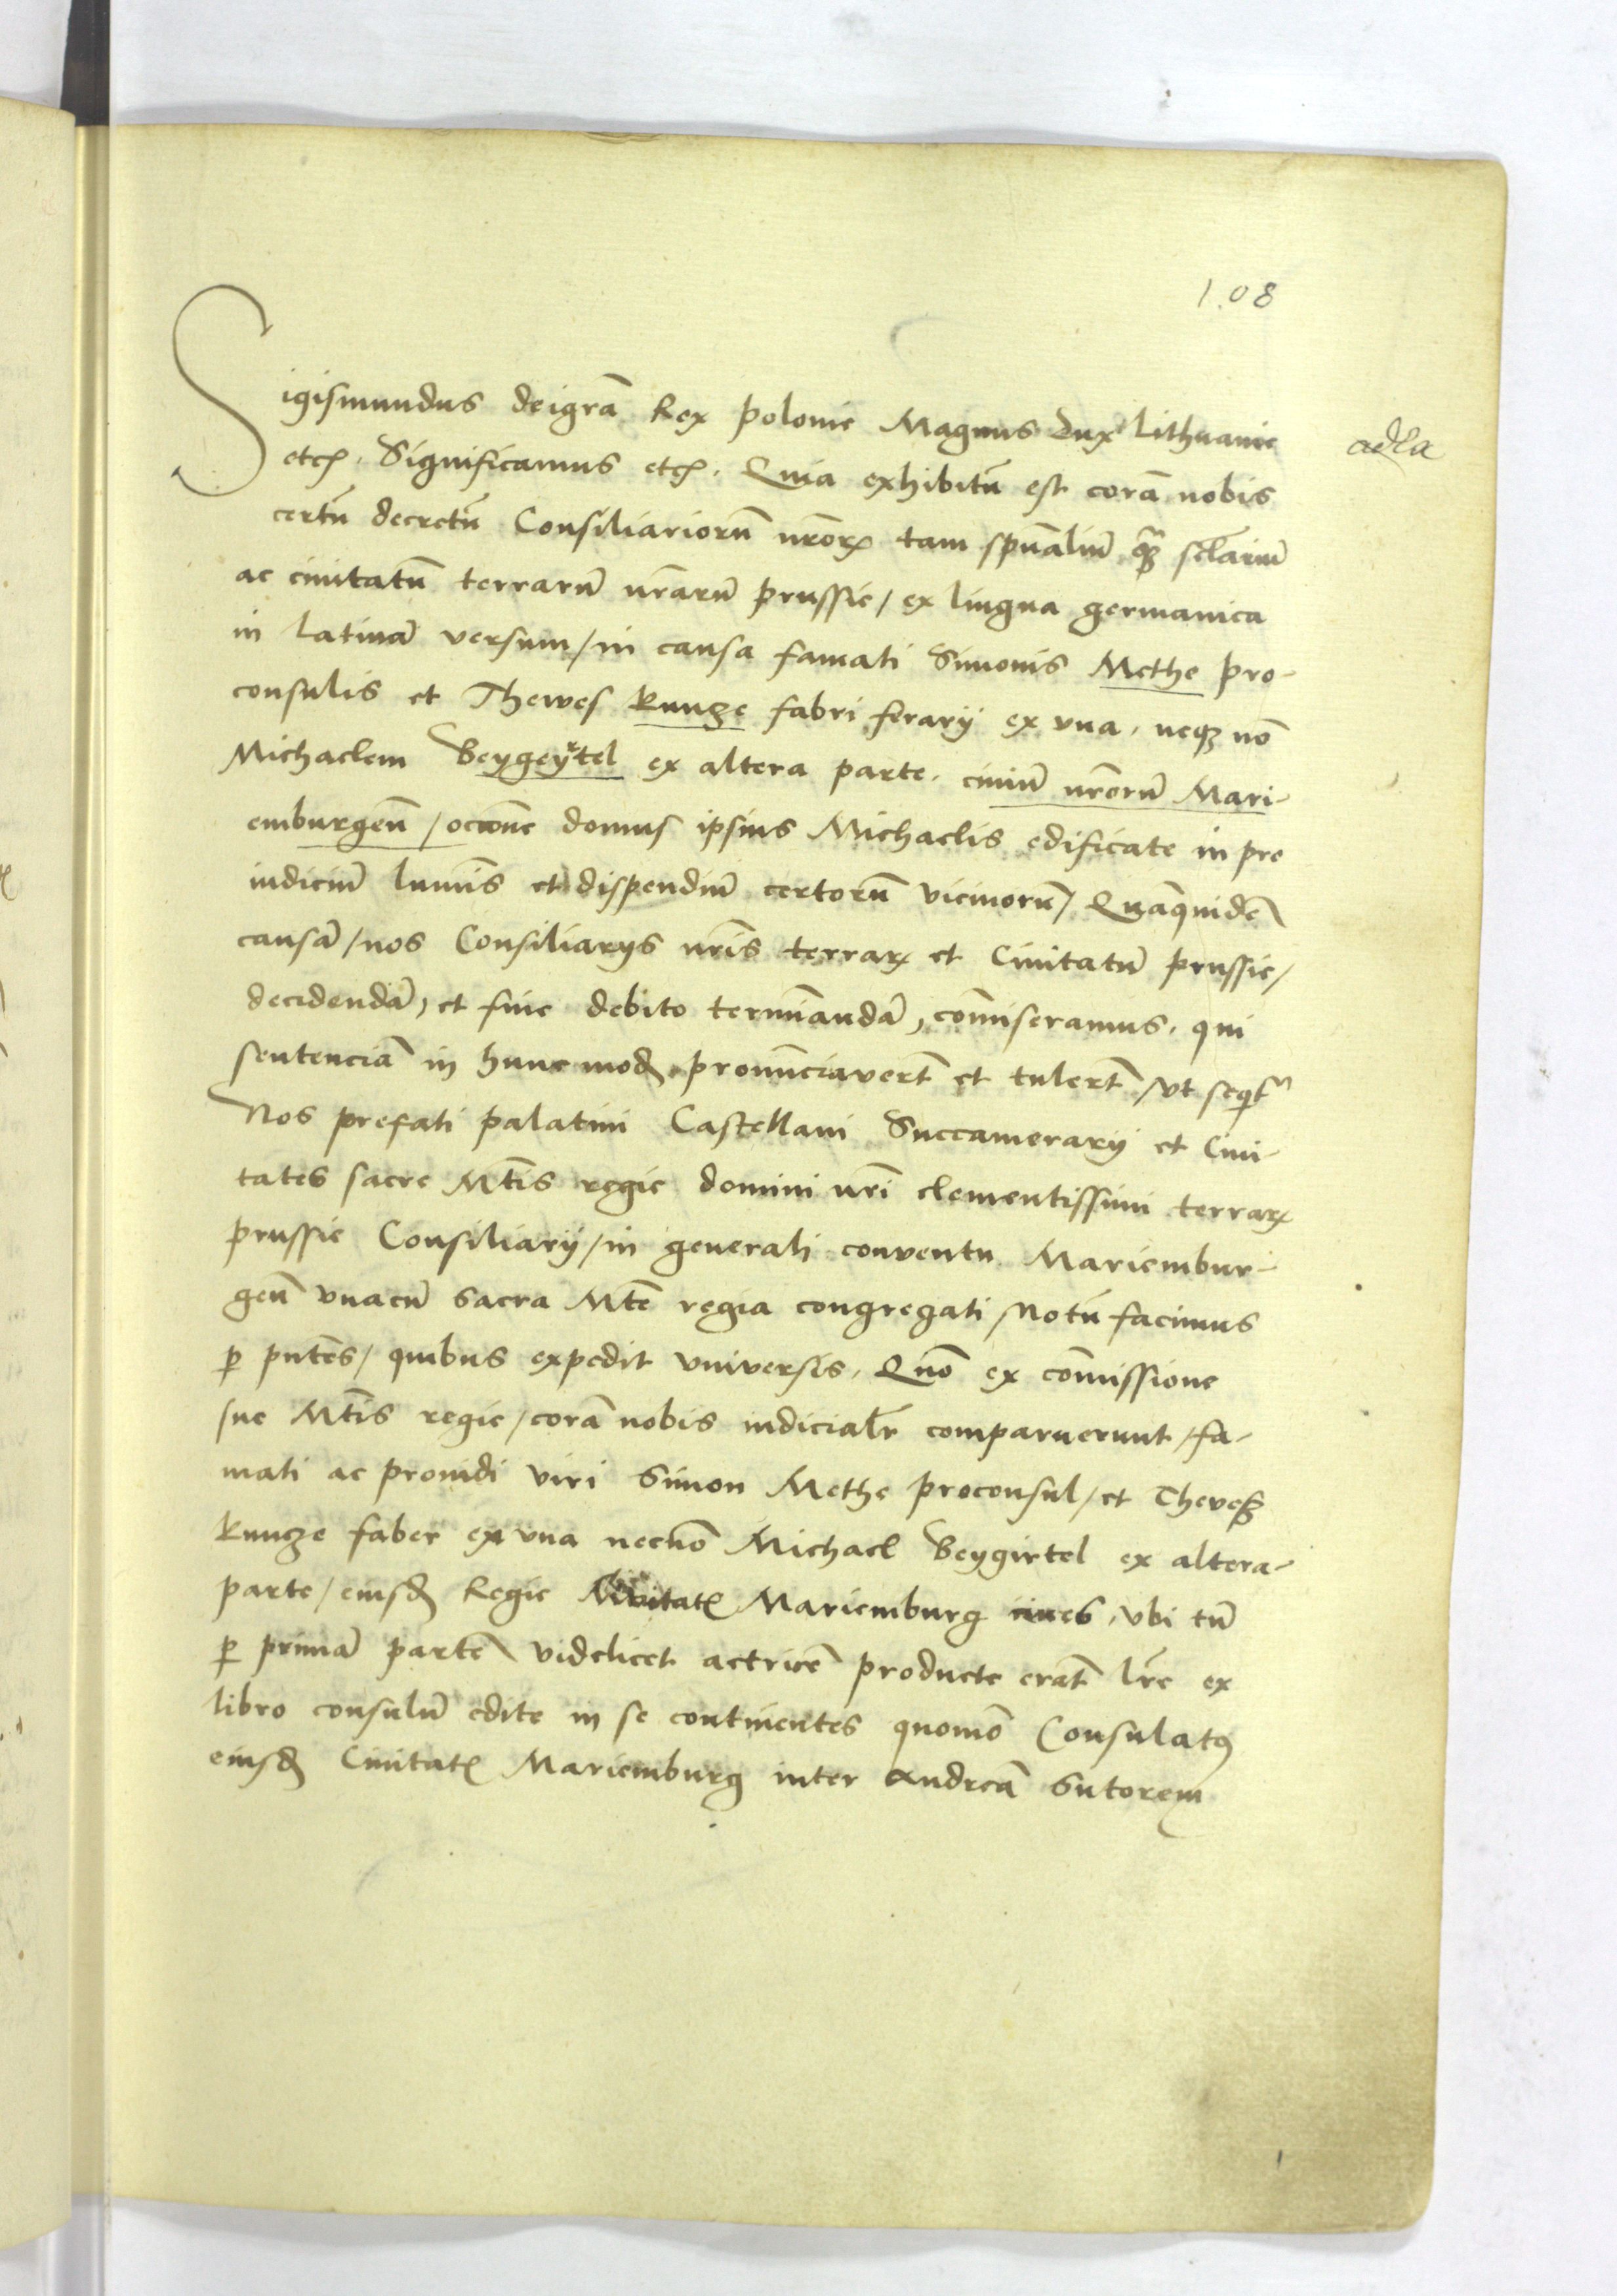 108
Sigismundus dei grã Rex polonie Magnus Dux Lithuanie
adla
etcꝫ. Significamus etcꝫ. Quia exhibitũ est corã nobis
certũ decretũ Consiliariorũ nr̃orꝝ tam spũaliũ qꝫ sclariũ
ac ciuitatũ terrarũ nr̃arũ prussie / ex lingua germanica
in latinã versum / in causa famati Simonis Methe pro-
consulis et Thewes Kunze fabri ferarij ex vna. neqꝫ nõ
Michaelem Beygeyrtel ex altera parte. ciuiũ nr̃orũ Mari-
emburgeñ / occone domus ipsius Michaelis edificate in pre
iudiciũ lumĩs et dispendiũ certorũ vicinorũ / Quãquidẽ
causã / nos Consiliarys nrĩs terrarꝝ et Ciuitatũ prussie /
decidendã, et fine debito termĩandã, com̃iseramus. qui
sentenciã in hunc mod pronũciavert̃ et tulert̃ / vt seqt͛
Nos prefati palatini Castellani Succamerarij et Ciui-
tates sacre Mt̃is regie domini nrĩ clementissimi terrarꝝ
prussie Consiliarij / in generali conventu Mariembur-
geñ vnacũ sacra Mt̃e regia congregati / Notũ facimus
ꝑ pñtes / quibus expedit vniversis. Quõ ex com̃issione
sue Mt̃is regie / corã nobis iudicialr̃ comparuerunt / fa-
mati ac prouidi viri Simon Methe proconsul / et Theweß
Kuncze faber ex vna necnõ Michael Beygirtel ex altera
parte / eiusd Regie Ciuitatꝭ Mariemburg ciues. vbi tũ
ꝑ primã partẽ videlicet actricẽ producte erãt lr̃e ex
libro consulũ edite in se continentes quomõ Consulatꝰ
eiusd Ciuitatꝭ Mariemburg inter Andreã Sutorem